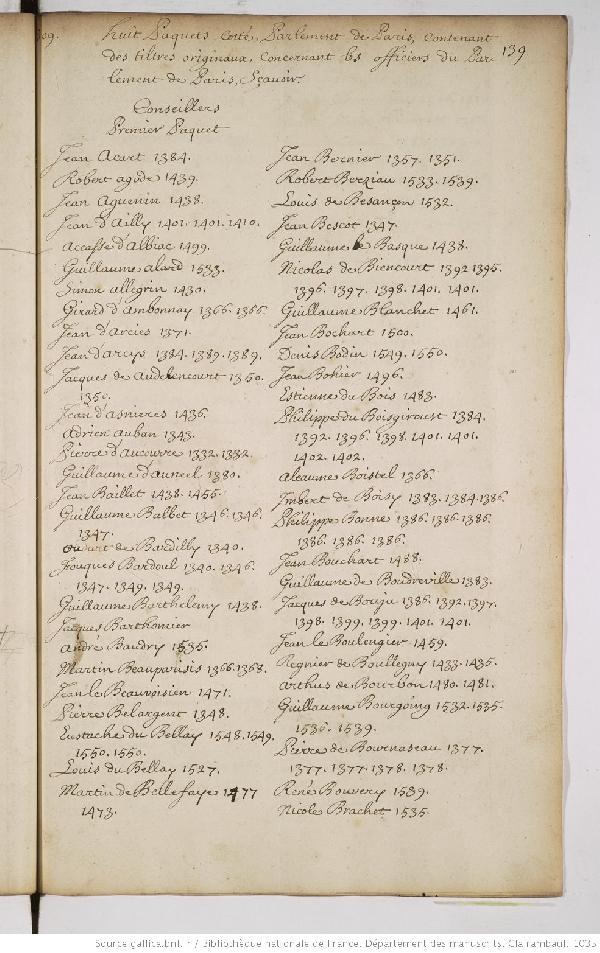 139
huit Paquets cotté, Parlement de Paris, Contenant
des tiltres originaux, Concernant les officiers du Par
lement de Paris, Sçauoir.
Conseillers
Premier Paquet
Jean Acart 1384.
Robert agode 1439.
Jean Aguenin 1438.
Jean d'Ailly 1401. 1401. 1410.
Accasse d'Albiac 1499.
Guillaume alard 1533.
Simon allegrin 1430.
Girard d'Ambonnay 1366. 1366.
Jean d'Arcies 1371.
Jean d'arcys 1384. 1389. 1389.
Jacques de Andelencourt 1350.
1350.
Jean d'Asnieres 1436.
Adrien Auban 1343.
Pierre d'Aucourre 1332. 1332.
Guillaume d'Auneel 1380.
Jean Baillet 1438. 1456.
Guillaume Balbet 1346. 1346.
1347.
de Bardilly 1340.
Fouques Bardoul 1340. 1346.
1347. 1349. 1349.
Guillaume Barthelemy 1438.
Jacques Barthomier
André Baudry 1535.
Martin Beauparisis 1366. 1368.
Jean le Beauvoisien 1471.
Pierre Belargent 1348.
Eustache du Bellay 1548. 1549.
1550. 1550.
Louis du Bellay 1527.
Martin de Bellefaye 1477
1473.
Jean Bernier 1357. 1351.
Robert Berziau 1533. 1539.
Louis de Besançon 1532.
Jean Bescot 1347.
Guillaume le Basque 1438.
Nicolas de Biencourt 1392 1395.
1396. 1397. 1398. 1401. 1401.
Guillaume Blanchet 1461.
Jean Bochart 1500.
Denis Bodin 1549. 1550.
Jean Bohier 1496.
Estienne du Bois 1483.
Philippe du Boisgiroust 1384.
1392. 1396. 1398. 1401. 1401.
1402. 1402.
Aleaume Boistel 1366.
Imbert de Boisy 1383. 1384. 1386.
Philippe Bonne 1386. 1386. 1386.
1386. 1386. 1386.
Jean Bouchart 1488.
Guillaume de Boudreville 1383.
Jacques de Bouju 1386. 1392. 1397.
1398. 1399. 1399. 1401. 1401.
Jean le Boulengier 1459.
Regnier de Boullegny 1433. 1435.
Arthus de Bourbon 1480. 1481.
Guillaume Bourgoing 1532. 1535.
1536. 1539.
Pierre de Bournaseau 1377.
1377. 1377. 1378. 1378.
René Bouvery 1539.
Nicole Brachet 1535.
Source gallica.bnf.fr / Bibliothèque nationale de France. Département des manuscrits. Clairambault 1035